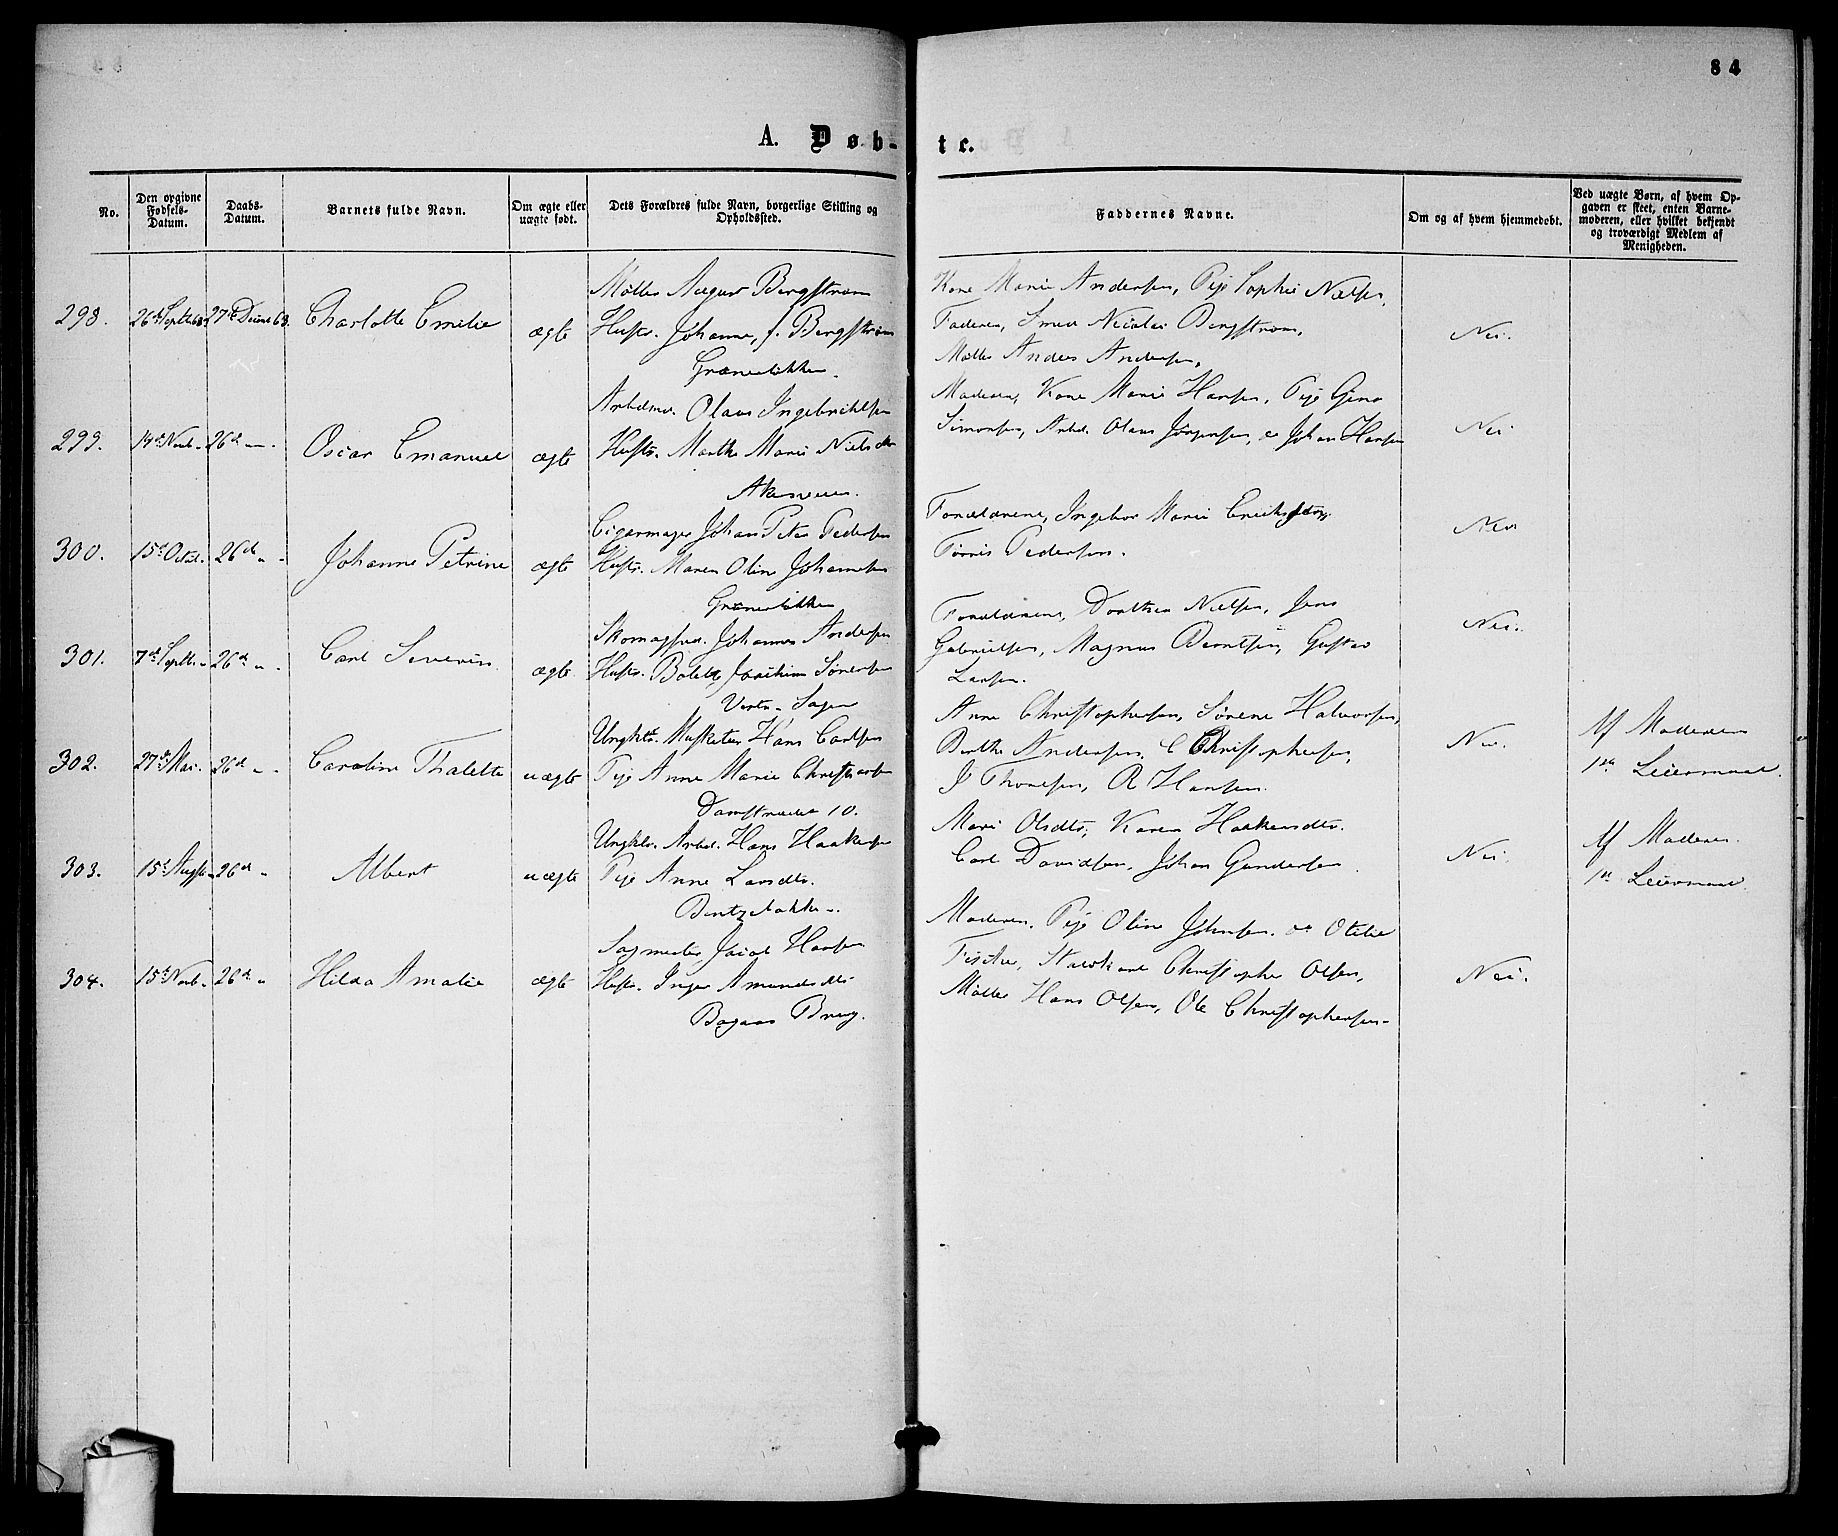 84
A. Døb-
te.
No.
Den opgivne Fødsels-Datum.
Daabs-Datum.
Barnets fulde Navn.
Om ægte eller uægte født.
Dets Forældres fulde Navn, borgerlige Stilling og Opholdssted.
Faddernes Navne.
Om og af hvem hjemmedøbt.
Ved uægte Børn, af hvem Opgaven er skeet, enten Barnemoderen, eller hvilket bekjendt og troværdigt Medlem af Menigheden.
298. 26de Septbr 68 27de Decbr 68. Charlotte Emilie ægte
Møller August Bergstrøm
Hustr. Johanne, f. Bergstrøm
Grünerløkken.
Kone Marie Andersen, Pige Sophie Nielsen,
Faderen, Smed Nicolai Bergstrøm,
Møller Anders Andersen,
Nei.
299. 14de Novb. 26de Oscar Emanuel ægte
Arbdmd. Olaus Ingebrichtsen
Hustr. Marthe Marie Nielsdtr
Akerselven.
Moderen, Kone Marie Hansen, Pige Gina
Simonsen, Arbd. Olaus Jørgensen, Johan Hansen
Nei
300. 15de Octob. 26de Johanne Petrine ægte
Cigarmager Johan Peter Pedersen
Hustr. Maren Oline Johannesen
Grünerløkken
Forældrene, Ingebor Marie Eriksen,
Tørris Pedersen.
Nei
301. 7de Septbr. 26de Carl Severin ægte
Skomagsvd. Johannes Andersen
Hustr. Bolette Joachime Sørensen
Forældrene, Dorthea Nielsen, Jens
Gabrielsen, Magnus Berntsen, Gustav
Larsen.
Nei.
302. 27de Mai. 26de Caroline Thalette uægte
Ungkls. Musketer Hans Carlsen
Pige Anne Marie
Damstrædet 10.
Anne Christophersen, Sørene Halvorsen,
Berthe Andersen, C Christophersen,
J Thoresen, R Hansen.
Nei.
Af Moderen
1ste Leiermaal.
303. 15de Augst. 26de Albert uægte
Ungkls. Arbd. Hans Haakensen
Pige Anne Larsdtr.
Bentzeløkken.
Mari Olsdtr, Karen Haakensdtr.
Carl Davidsen, Johan Gundersen
Nei.
Af Moderen.
1ste Leiermaal.
304. 15de Novb. 26de Hilda Amalie ægte
Sagmester Jacob Hansen
Hustr. Inger Amundsdtr
Brug.
Moderen, Pige Oline Johnsen og Otilie
Fischer, Christopher Olsen,
Møller Hans Olsen, Ole Christophersen
Nei.